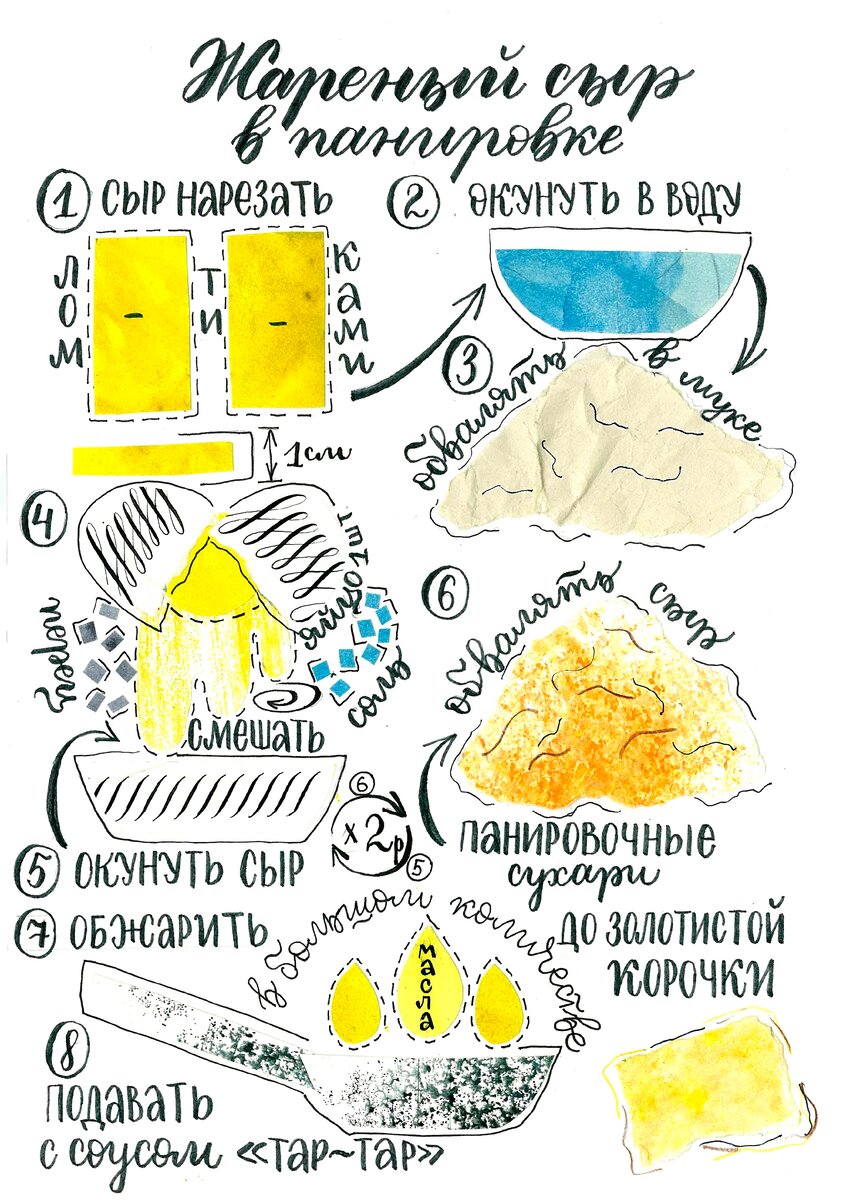 Жареный сыр
в панировке
1 СЫР НАРЕЗАТЬ
ЛОМ
ТИ
КАМИ
1 см
2 ОКУНУТЬ В ВОДУ
3 обвалять в муке
4
яйцо 1 шт
перец
соль
СМЕШАТЬ
5 ОКУНУТЬ СЫР
6 обвалять сыр
ПАНИРОВОЧНЫЕ
сухари
6
×2р
5
7 ОБЖАРИТЬ
в большом количестве
масла
ДО ЗОЛОТИСТОЙ
КОРОЧКИ
8
ПОДАВАТЬ
с соусом «ТАР~ТАР»